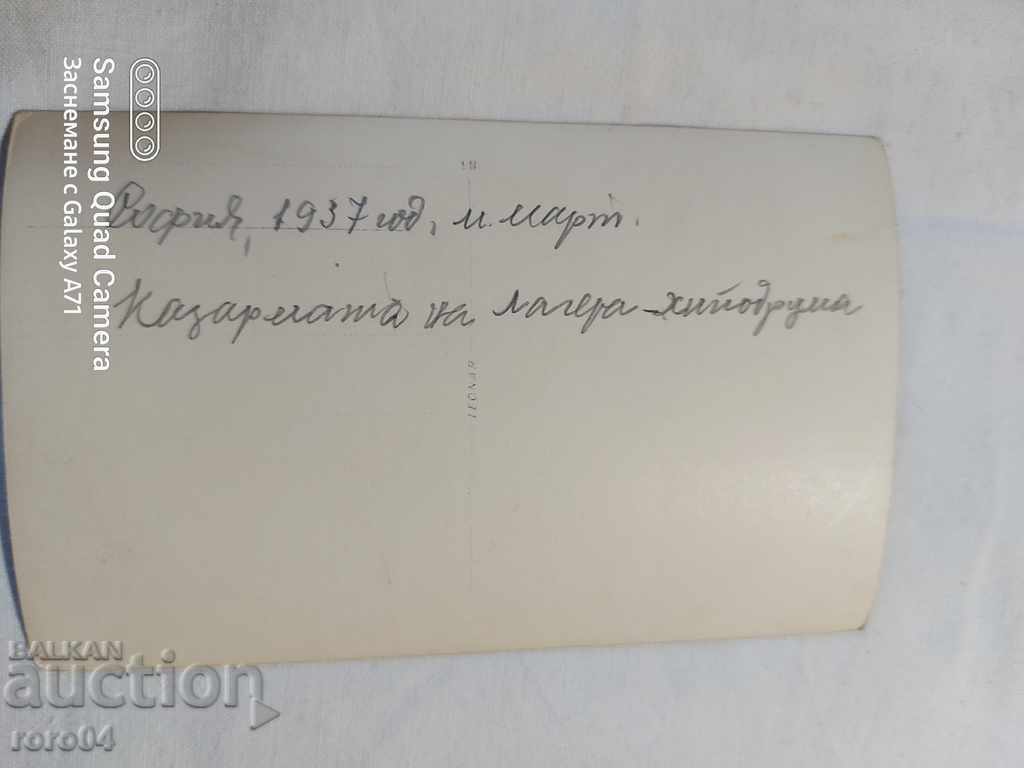 София, 1937 год, м. Март.
Казармата на лагера - хиподрума
LEONAR
Samsung Quad Camera
Заснемане с Galaxy A71
BALKAN
auction
roro04